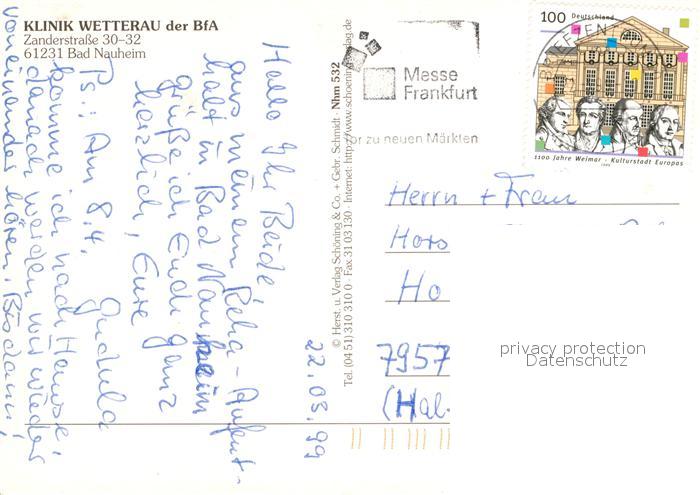 KLINIK WETTERAU der BfA
Zanderstraße 30-32
61231 Bad Nauheim
22.03.99
Hallo Ihr Beide,
aus meinem Reha-Aufent-
halt in Bad Nauheim
grüße ich Euch ganz
herzlich, Eure
Gudula
Ps.: Am 8.4.
komme ich nach Hause,
danach werden wir wieder
voneinander hören. Bis dann!
© Herst. u. Verlag Schöning & Co. + Gebr. Schmidt · Nhm 532
Tel. (04 51) 310 310 0 · Fax 31 03 130 · Internet: http://www.schoening-verlag.de
Messe
Frankfurt
or zu neuen Märkten
100 Deutschland
1100 Jahre Weimar · Kulturstadt Europas
1999
Herrn + Frau
Hors
Ho
7957
(Hal.
privacy protection
Datenschutz